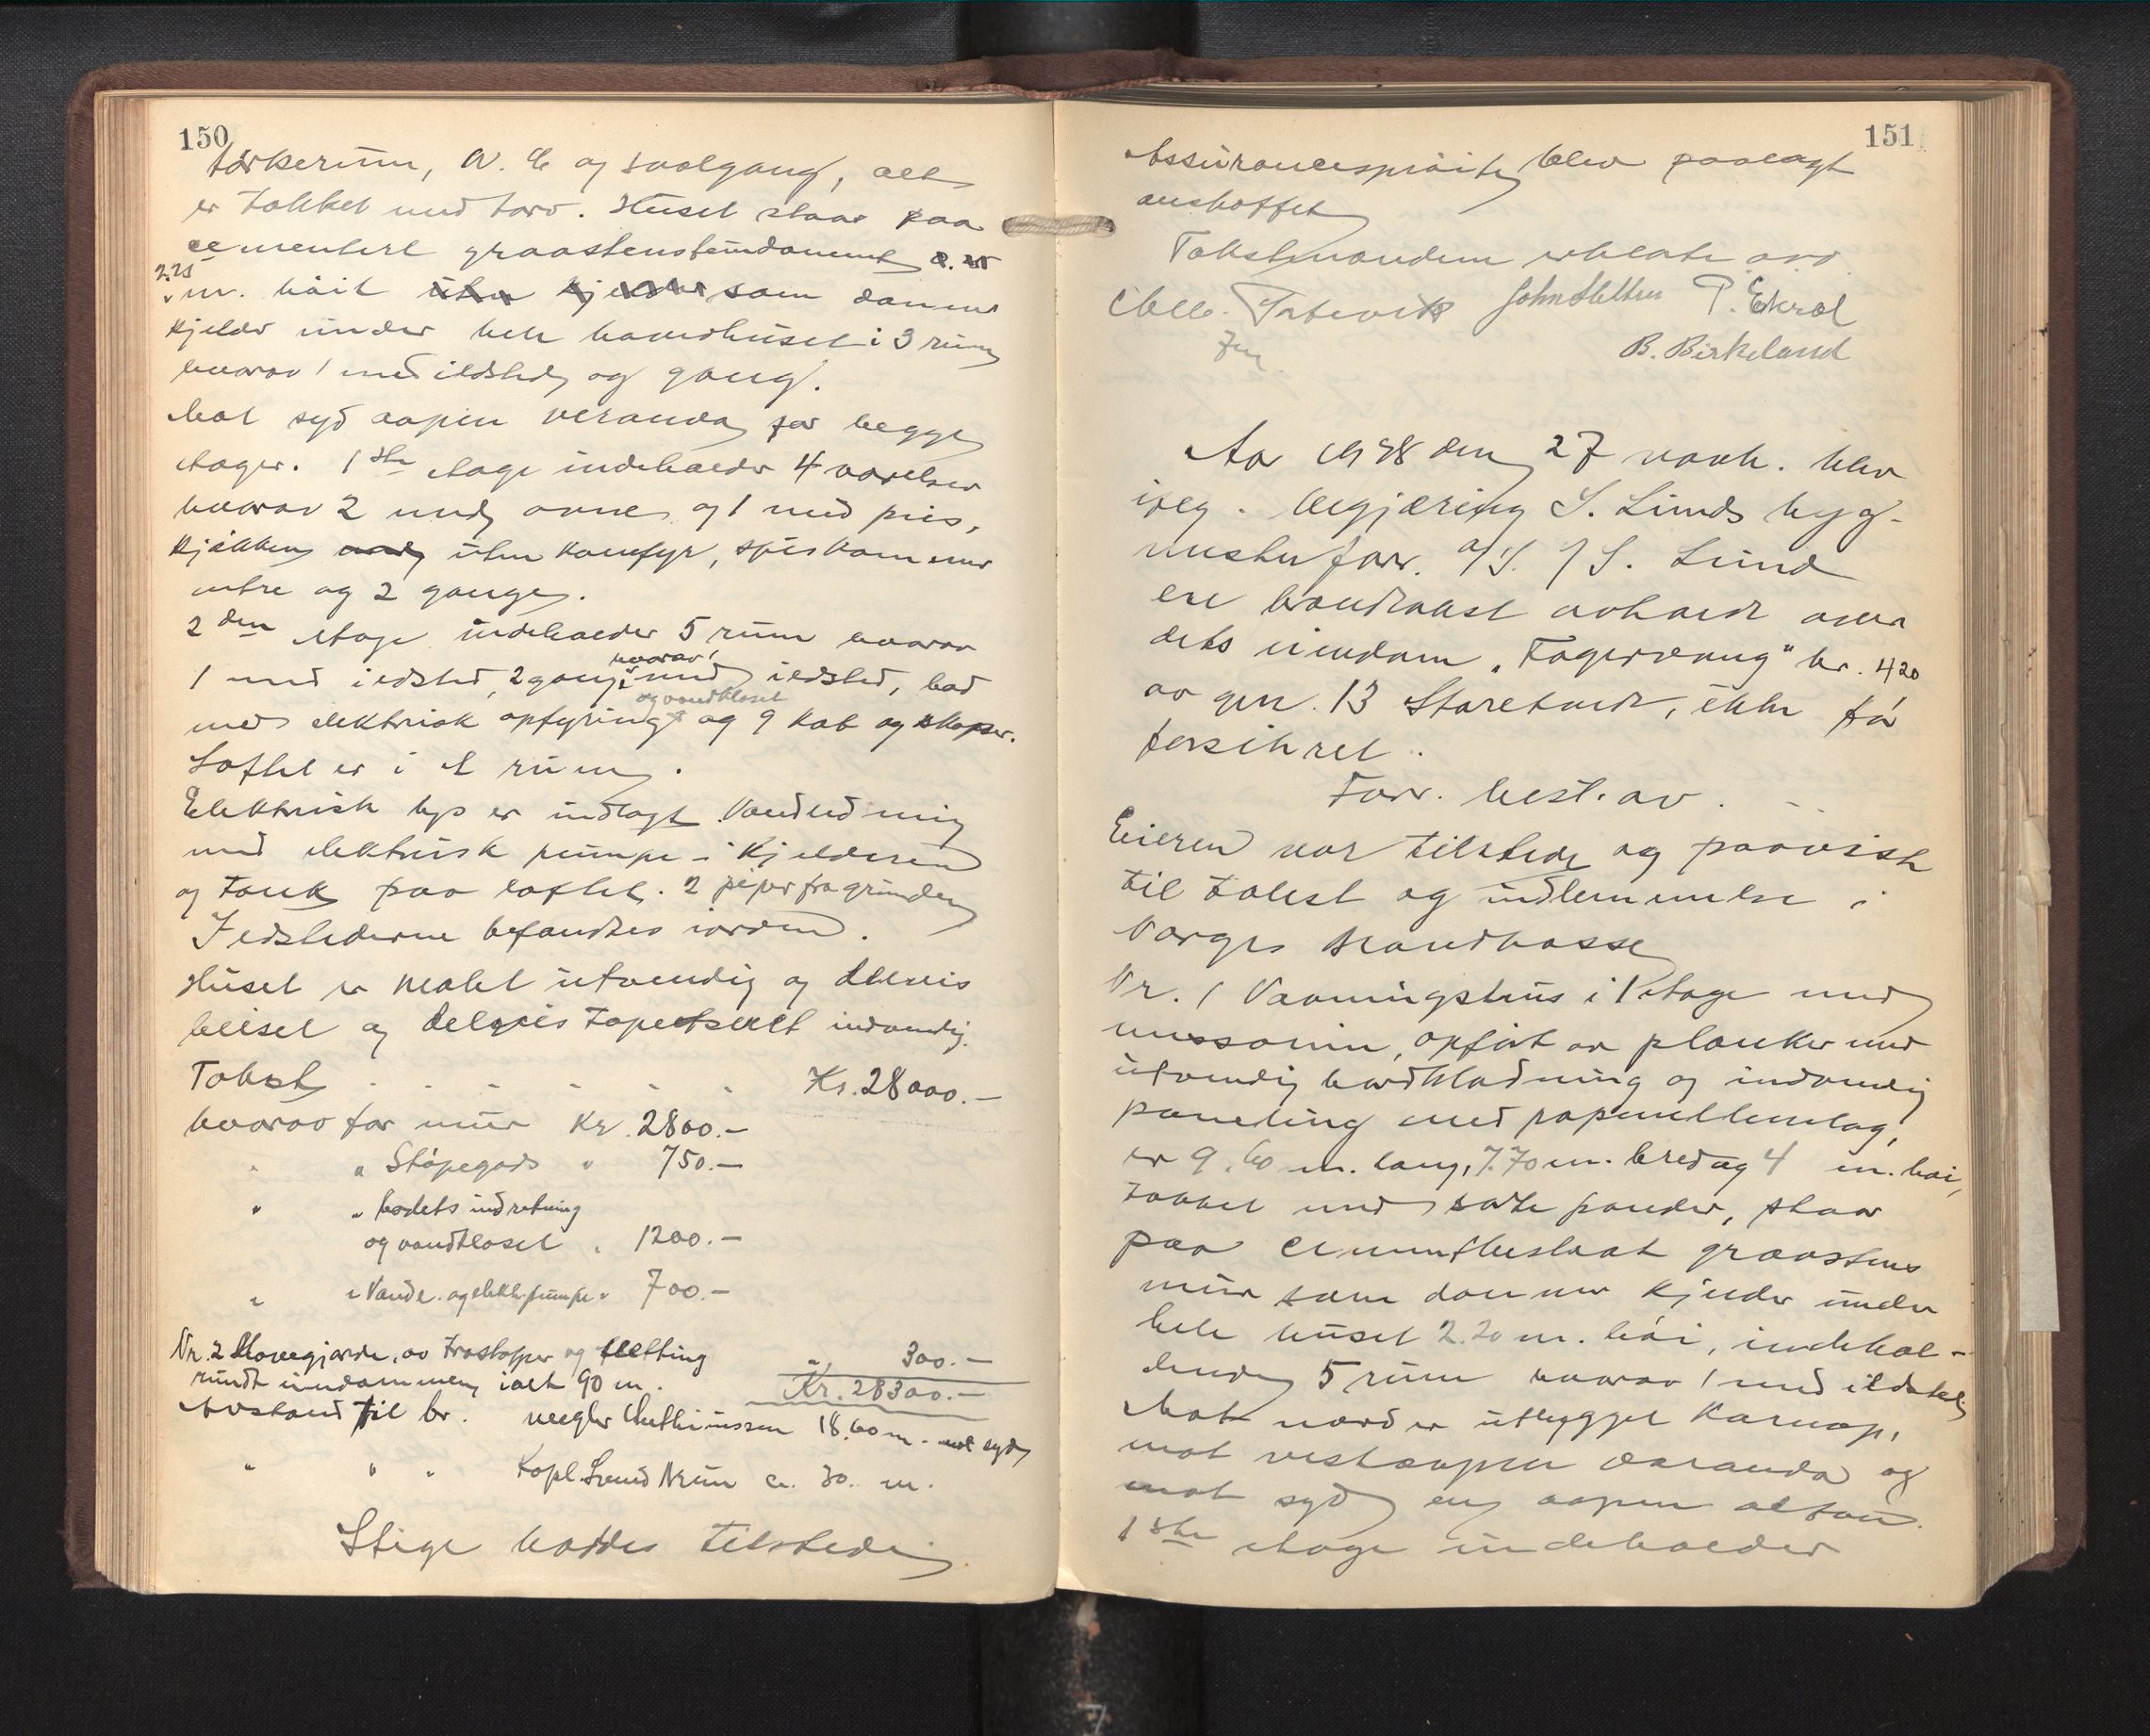 150
tørkerum, W. C og svalgang, alt
er takket med torv. Huset staar paa
cementert graastensfundament
2.25
m. høit som danner
kjelder under hele hovedhuset i 3 rum
hvorav 1 med ildsted og gang.
Mot syd aapen veranda for begge
etager. 1ste etage indeholder 4 værelser
hvorav 2 med ovne og 1 med peis,
kjøkken uten komfyr, spiskammer
entre og 2 gange.
2den etage indeholder 5 rum hvorav
hvorav 1
1 med ildsted, 2 gange med ildsted, bad
og vandkloset
med elektrisk opfyring og 9 kot og skaper.
Loftet er i et rum.
Elektrisk lys er indlagt. Vandledning
med elektrisk pumpe i kjelderen
og tank paa loftet. 2 piper fra grunden
Ildstederne befandtes iorden.
Huset er malet utvendig og delvis
beiset og delvis tapetseret indvendig.
Takst - - - - - Kr. 28000.-
hvorav for mur Kr. 2800.-
" " Støpegods " 750.-
" " badets indretning
og vandkloset " 1200.-
" " Vandl. og elektr. pumpe " 700.-
Nr. 2 Havegjærde, av træstolper og fletting
rundt eiendommen ialt 90 m. " 300.-
Kr. 28300.-
Avstand til br. 18.60 m. mot syd
" " " ca. 30. m.
Stige haddes tilstede
151
Assurancesprøite blev paalagt
anskaffet
Takstmændene erklærte
John Sletten P. Ekrol
B. Birkeland
Aar 1928 den 27 blev
ifølg. begjæring S. Lunds byg-
mesterforr. A/S. v/ S. Lund
en brandtakst avholdt over
dets eiendom "Fagervang" br. 420
av gnr. 13 Storetveit, ikke før
forsikret.
Forr. best. av. - -
Eieren var tilstede og paaviste
til takst og indlemmelse i
Norges Brandkasse
Nr. 1 Vaaningshus i 1 etage med
messanin, opført av planker med
utvendig bordklædning og indvendig
paneling med papmellemlag,
er 9.60 m. lang, 7.70 m. bred og 4 m. høi,
takket med sorte pander, staar
paa cementbeslaat graastens
mur som danner kjelder under
hele huset 2.20 m. høi, indehol-
dende 5 rum hvorav 1 med ildsted
Mot nord er utbygget karnap,
mot vest aapen veranda og
mot syd en aapen altan.
1ste etage indeholder